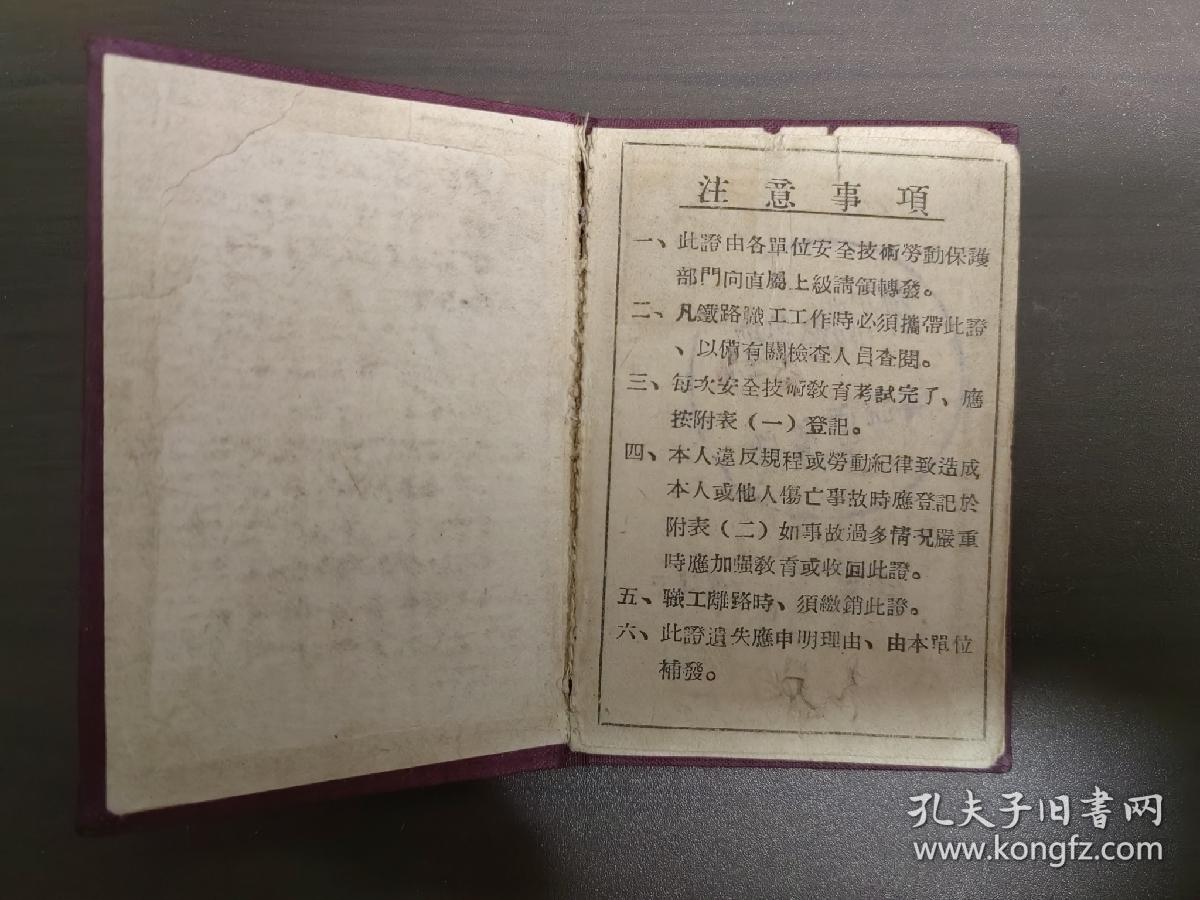 注意事項
一、此證由各單位安全技術勞動保護
部門向直屬上級請領轉發。
二、凡鐵路職工工作時必須攜帶此證
、以備有關檢查人員查閱。
三、每次安全技術教育考試完了、應
按附表（一）登記。
四、本人違反規程或勞動紀律致造成
本人或他人傷亡事故時應登記於
附表（二）如事故過多情況嚴重
時應加强教育或收回此證。
五、職工離路時、須繳銷此證。
六、此證遺失應申明理由、由本單位
補發。
孔夫子旧书网
www.kongfz.com